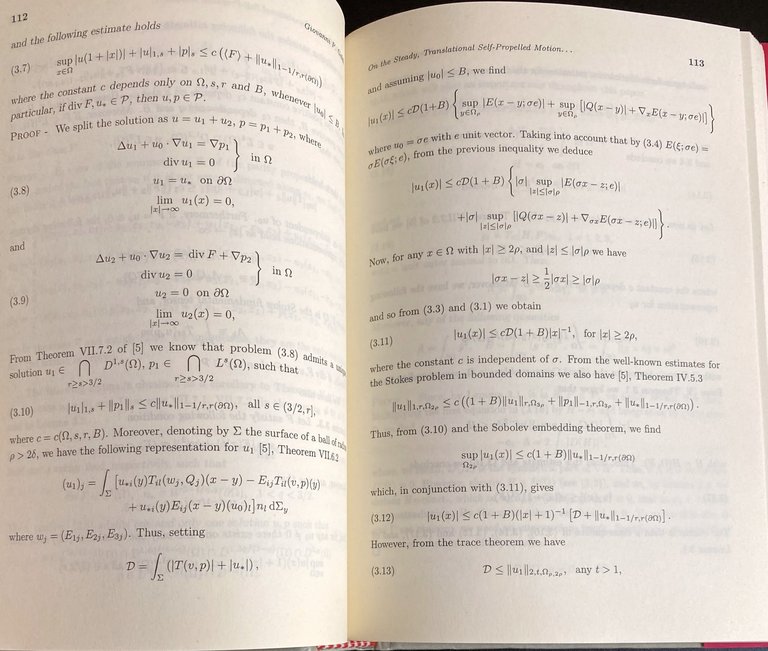 112
Giovanni P.
and the following estimate holds
(3.7) sup_{x∈Ω} |u(1 + |x|)| + |u|_{1,s} + |p|_s ≤ c (⟨F⟩ + ‖u_*‖_{1−1/r,r(∂Ω)})
where the constant c depends only on Ω, s, r and B, whenever |u_0| ≤ B.
particular, if div F, u_* ∈ 𝒫, then u, p ∈ 𝒫.
PROOF - We split the solution as u = u_1 + u_2, p = p_1 + p_2, where
Δu_1 + u_0 · ∇u_1 = ∇p_1
div u_1 = 0 } in Ω
(3.8) u_1 = u_* on ∂Ω
lim_{|x|→∞} u_1(x) = 0,
and
Δu_2 + u_0 · ∇u_2 = div F + ∇p_2
div u_2 = 0 } in Ω
(3.9) u_2 = 0 on ∂Ω
lim_{|x|→∞} u_2(x) = 0,
From Theorem VII.7.2 of [5] we know that problem (3.8) admits a
solution u_1 ∈ ⋂_{r≥s>3/2} D^{1,s}(Ω), p_1 ∈ ⋂_{r≥s>3/2} L^s(Ω), such that
(3.10) |u_1|_{1,s} + ‖p_1‖_s ≤ c‖u_*‖_{1−1/r,r(∂Ω)}, all s ∈ (3/2, r],
where c = c(Ω, s, r, B). Moreover, denoting by Σ the surface of a ball of
ρ > 2δ, we have the following representation for u_1 [5], Theorem VII.6.2
(u_1)_j = ∫_Σ [u_{*i}(y)T_{il}(w_j, Q_j)(x − y) − E_{ij}T_{il}(v, p)(y)
+ u_{*i}(y)E_{ij}(x − y)(u_0)_l] n_l dΣ_y
where w_j = (E_{1j}, E_{2j}, E_{3j}). Thus, setting
𝒟 = ∫_Σ (|T(v, p)| + |u_*|),
On the Steady, Translational Self-Propelled Motion...
113
and assuming |u_0| ≤ B, we find
|u_1(x)| ≤ c𝒟(1+B) { sup_{y∈Ω_ρ} |E(x − y; σe)| + sup_{y∈Ω_ρ} [|Q(x − y)| + ∇_x E(x − y; σe)|] }
where u_0 = σe with e unit vector. Taking into account that by (3.4) E(ξ; σe) =
σE(σξ; e), from the previous inequality we deduce
|u_1(x)| ≤ c𝒟(1 + B) { |σ| sup_{|z|≤|σ|ρ} |E(σx − z; e)|
+|σ| sup_{|z|≤|σ|ρ} [|Q(σx − z)| + ∇_{σx}E(σx − z; e)|] }.
Now, for any x ∈ Ω with |x| ≥ 2ρ, and |z| ≤ |σ|ρ we have
|σx − z| ≥ 1/2 |σx| ≥ |σ|ρ
and so from (3.3) and (3.1) we obtain
(3.11) |u_1(x)| ≤ c𝒟(1 + B)|x|^{−1}, for |x| ≥ 2ρ,
where the constant c is independent of σ. From the well-known estimates for
the Stokes problem in bounded domains we also have [5], Theorem IV.5.3
‖u_1‖_{1,r,Ω_{2ρ}} ≤ c ((1 + B)‖u_1‖_{r,Ω_{3ρ}} + ‖p_1‖_{−1,r,Ω_{3ρ}} + ‖u_*‖_{1−1/r,r(∂Ω)}).
Thus, from (3.10) and the Sobolev embedding theorem, we find
sup_{Ω_{2ρ}} |u_1(x)| ≤ c(1 + B)‖u_*‖_{1−1/r,r(∂Ω)}
which, in conjunction with (3.11), gives
(3.12) |u_1(x)| ≤ c(1 + B)(|x| + 1)^{−1} [𝒟 + ‖u_*‖_{1−1/r,r(∂Ω)}].
However, from the trace theorem we have
(3.13) 𝒟 ≤ ‖u_1‖_{2,t,Ω_{ρ,2ρ}}, any t > 1,